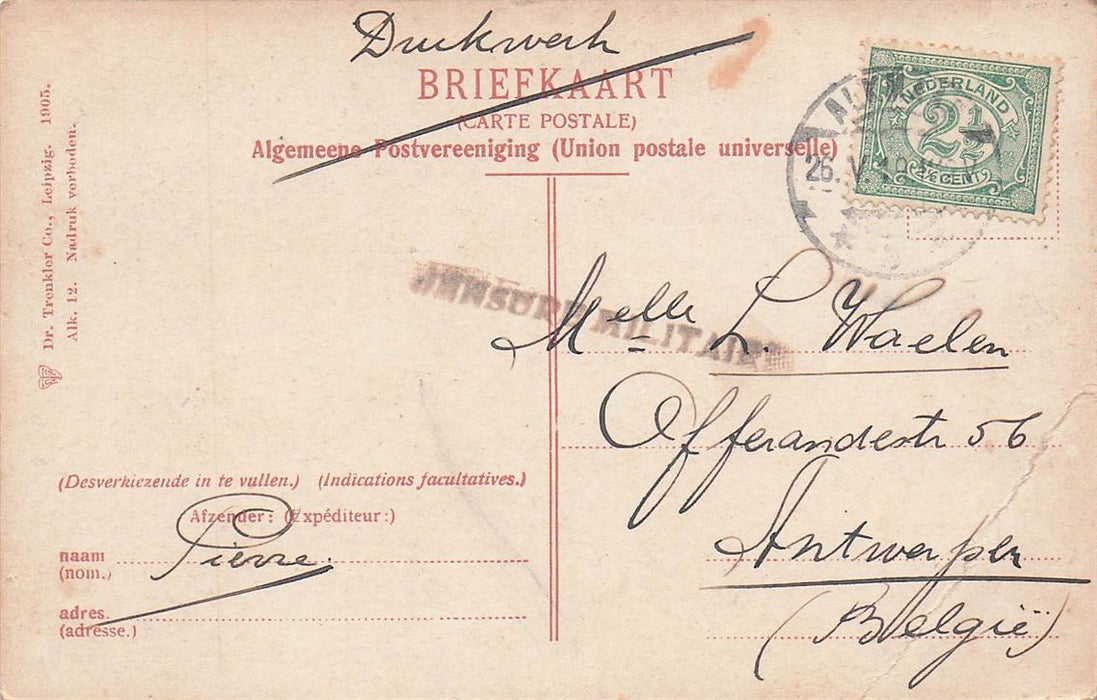 Drukwerk
BRIEFKAART
(CARTE POSTALE)
Algemeene Postvereeniging (Union postale universelle)
Dr. Trenkler Co., Leipzig. 1905.
Alk. 12. Nadruk verboden.
NEDERLAND
2½
2½ CENT
26. V
MILITAIRE
Melle L. Waelen
Offerandestr 56
Antwerpen
(België)
(Desverkiezende in te vullen.) (Indications facultatives.)
Afzender: (Expéditeur:)
naam
(nom.)
Pierre
adres.
(adresse.)